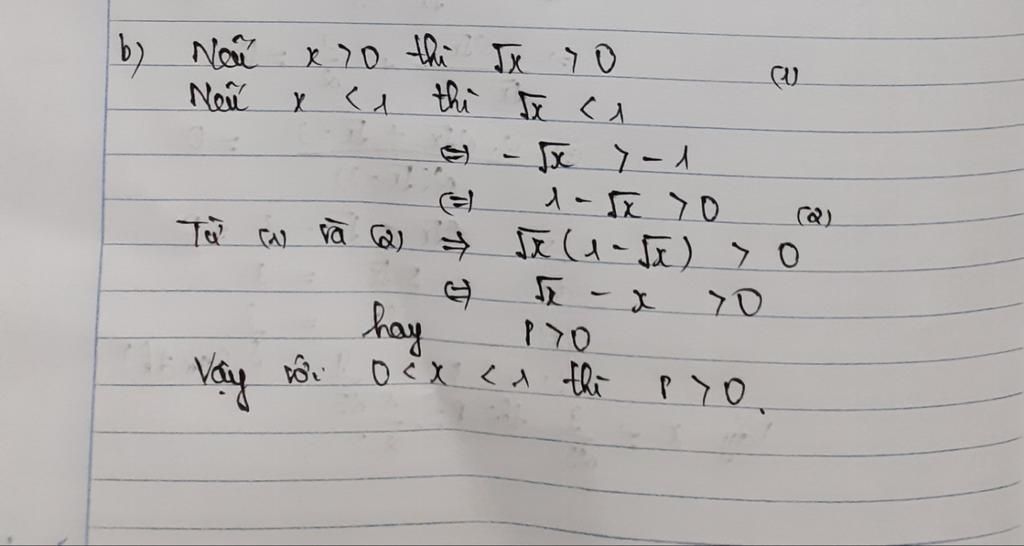 b) Nếu x > 0 thì √x > 0 (1)
Nếu x < 1 thì √x < 1
⇔ - √x > - 1
⇔ 1 - √x > 0 (2)
Từ (1) và (2) ⇒ √x (1 - √x) > 0
⇔ √x - x > 0
hay P > 0
Vậy với 0 < x < 1 thì P > 0.